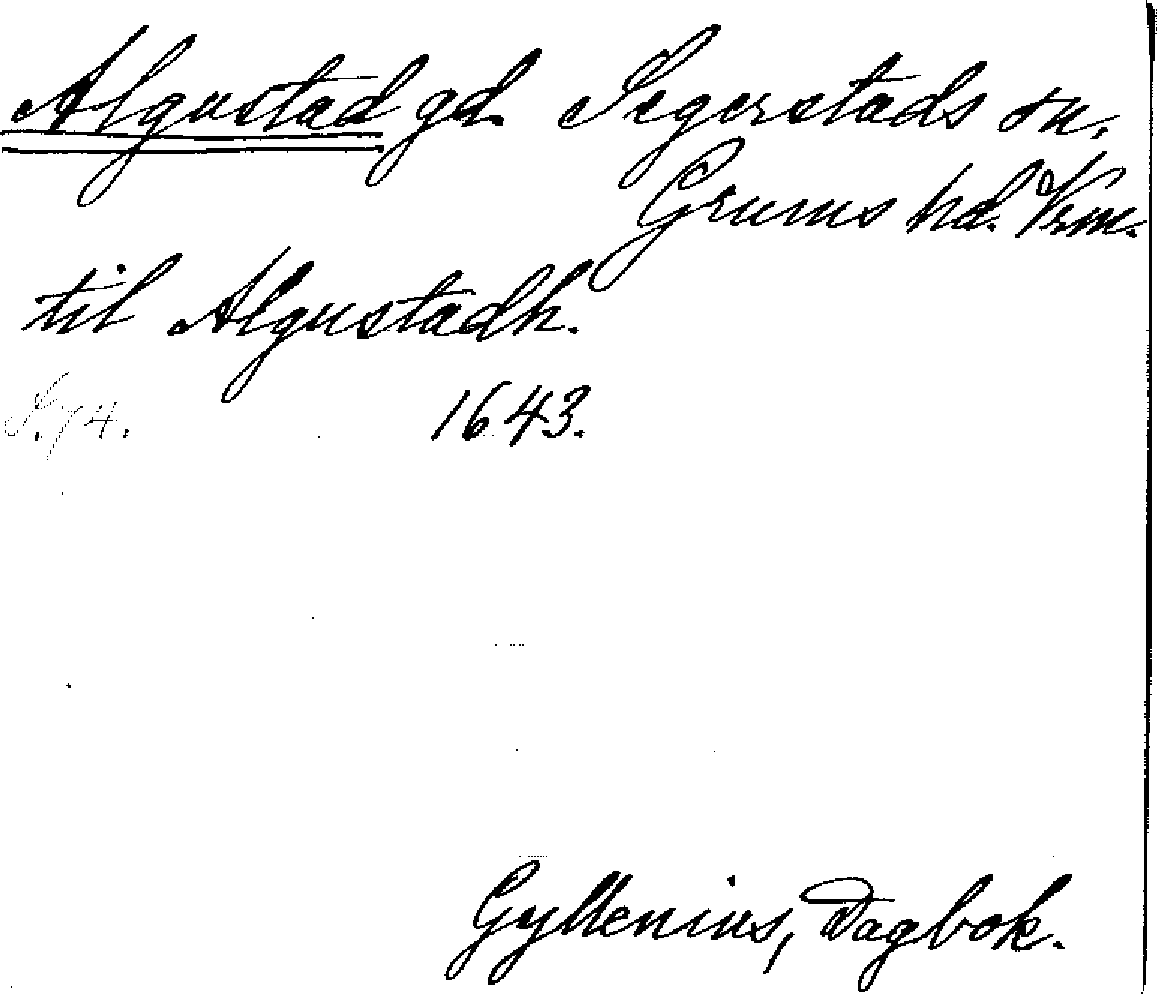 Algustad gd. Segerstads sn.
Grums hd. Vrm.
til Algustadh.
S. 74. 1643.
Gyllenius, Dagbok.